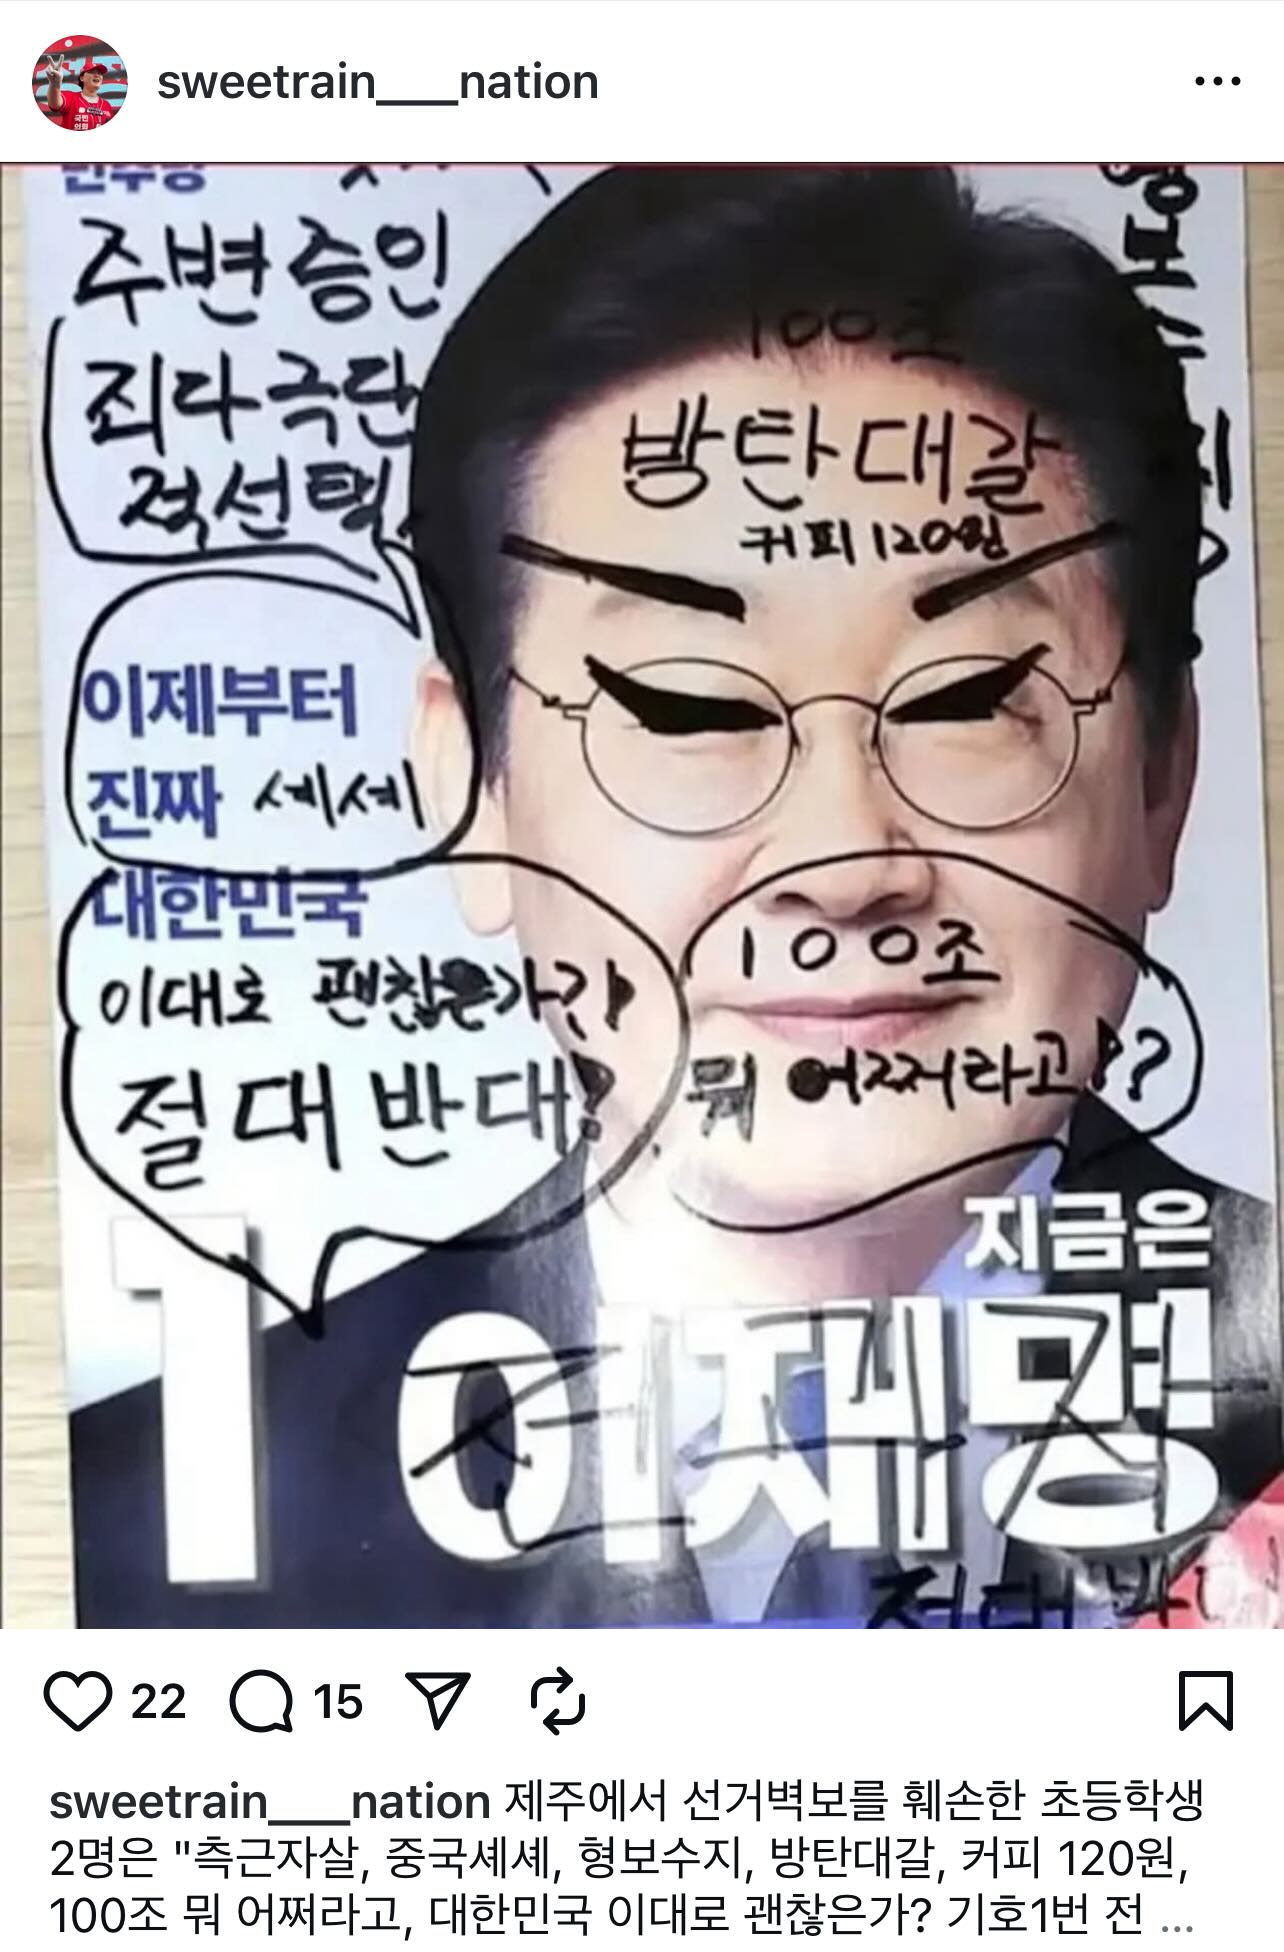 sweetrain___nation
민주당
주변 증인
죄다 극단
적선택
100조
방탄대갈
커피 120원
형보수지
이제부터
진짜 세세
대한민국
이대로 괜찮은가
절대 반대!
100조
뭐 어쩌라고!?
지금은
1 이재명
절대 반
22 15
sweetrain___nation 제주에서 선거벽보를 훼손한 초등학생
2명은 "측근자살, 중국셰셰, 형보수지, 방탄대갈, 커피 120원,
100조 뭐 어쩌라고, 대한민국 이대로 괜찮은가? 기호1번 전 ...